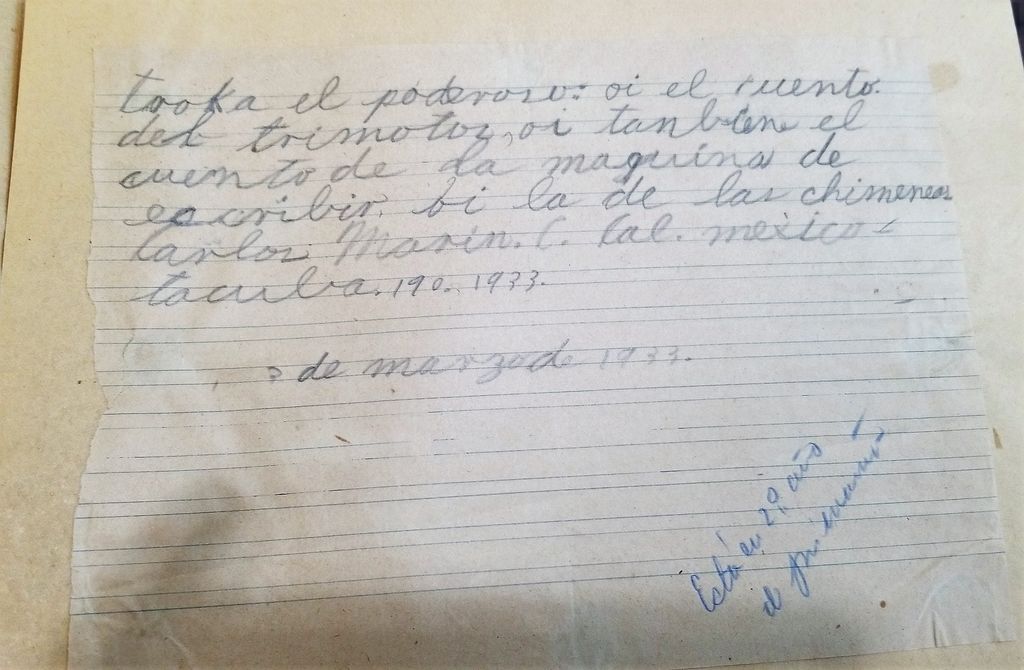 troka el poderoso: oi el cuento.
del trimotor, oi tanbien el
cuento de la maquina de
escribir, oi la de las chimeneas
Carlos Marin. C. Cal. mexico-
tacuba. 190. 1933.
de marzo de 1933.
Está en 2º. año
de primaria